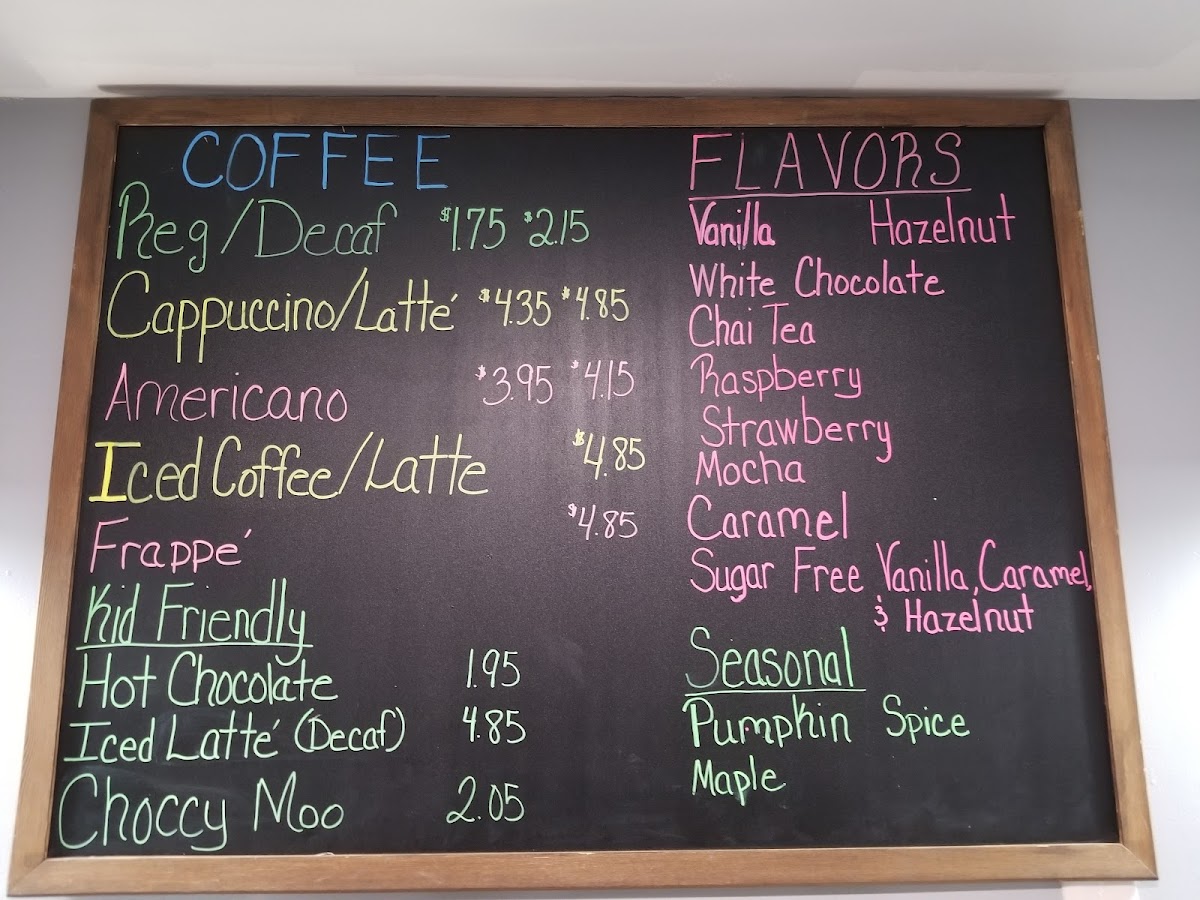 COFFEE
Reg/Decaf $1.75 $2.15
Cappuccino/Latté $4.35 $4.85
Americano $3.95 $4.15
Iced Coffee/Latte $4.85
Frappé $4.85
Kid Friendly
Hot Chocolate 1.95
Iced Latté (Decaf) 4.85
Choccy Moo 2.05
FLAVORS
Vanilla Hazelnut
White Chocolate
Chai Tea
Raspberry
Strawberry
Mocha
Caramel
Sugar Free Vanilla, Caramel,
& Hazelnut
Seasonal
Pumpkin Spice
Maple